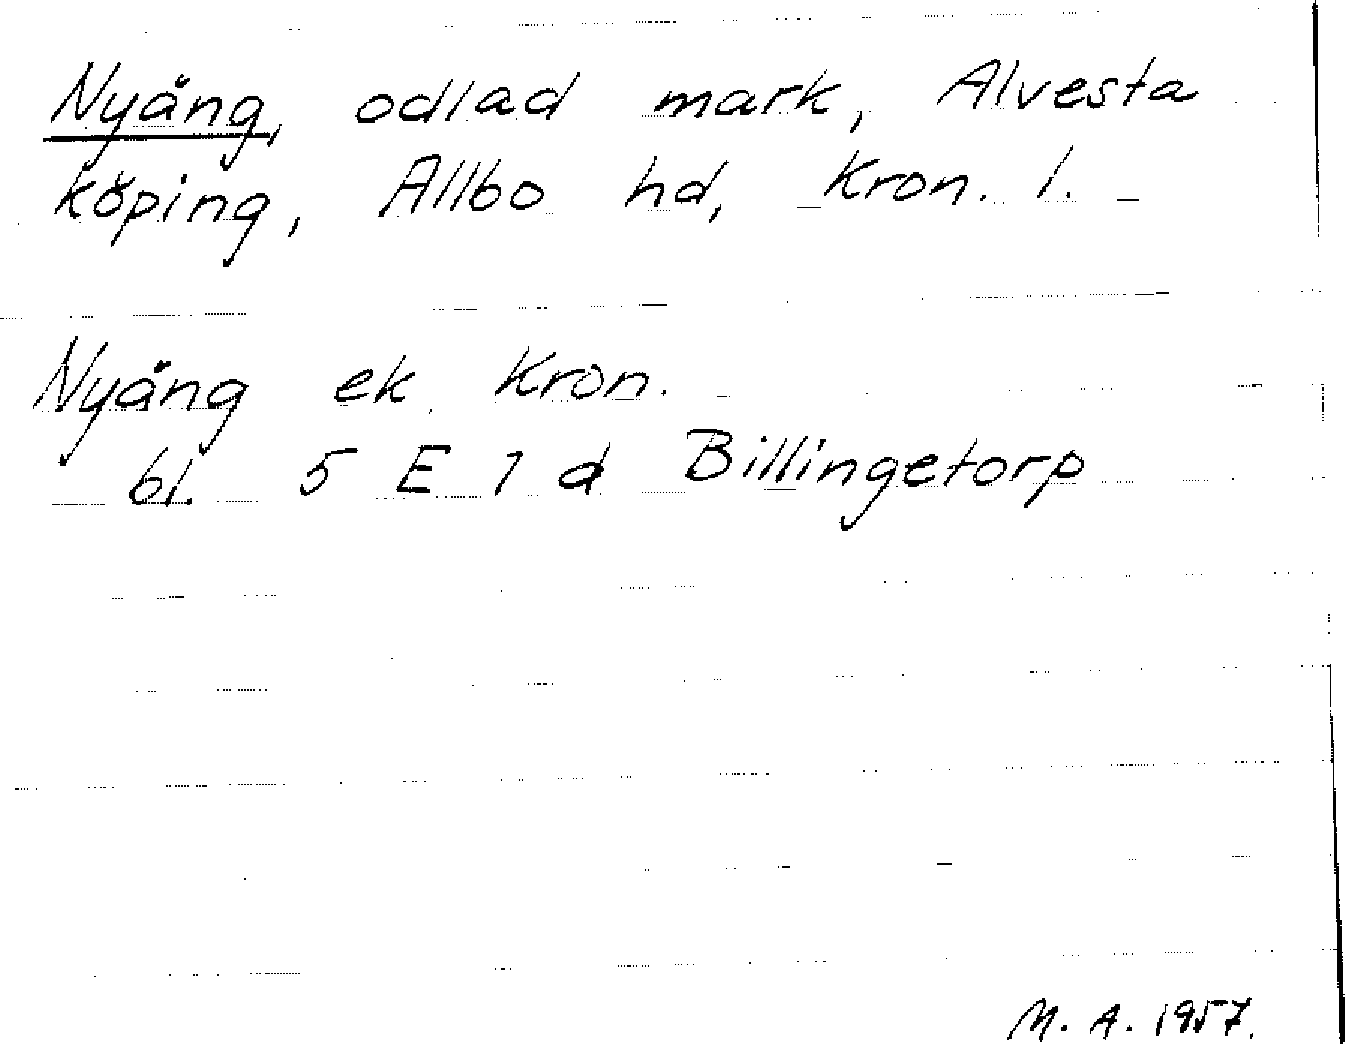 Nyäng, odlad mark, Alvesta
köping, Allbo hd, Kron. l. –
Nyäng ek. Kron.
bl. 5 E 1 d Billingetorp
M. A. 1957.